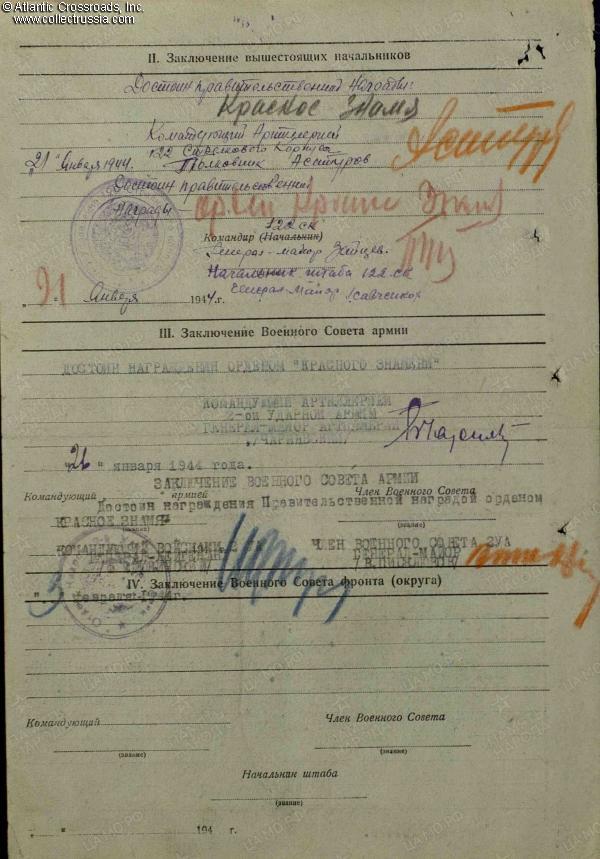 © Atlantic Crossroads, Inc.
www.collectrussia.com
II. Заключение вышестоящих начальников
Достоин правительственной Награды:
Красное Знамя
Командующий Артиллерией
122 Стрелкового Корпуса
"21" Января 1944. Полковник
Достоин правительственной
Награды – орден Красное Знамя
122 СК
Командир (Начальник)
Генерал-майор Зайцев.
Начальник штаба 122 СК
Генерал-Майор Савченко
21 Января 1944 г.
III. Заключение Военного Совета армии
ДОСТОИН НАГРАЖДЕНИЯ ОРДЕНОМ "КРАСНОГО ЗНАМЕНИ"
КОМАНДУЮЩИЙ АРТИЛЛЕРИЕЙ
2-ой УДАРНОЙ АРМИИ
ГЕНЕРАЛ-МАЙОР АРТИЛЛЕРИИ
"26" января 1944 года.
ЗАКЛЮЧЕНИЕ ВОЕННОГО СОВЕТА АРМИИ
Командующий армией Член Военного Совета
Достоин награждения Правительственной наградой орденом
(звание)
КРАСНОЕ ЗНАМЯ
КОМАНДУЮЩИЙ ВОЙСКАМИ ЧЛЕН ВОЕННОГО СОВЕТА 2УА
ГЕНЕРАЛ-МАЙОР
IV. Заключение Военного Совета фронта (округа)
февраля 1944г.
Командующий
Член Военного Совета
(звание) (звание)
Начальник штаба
(звание)
" " 194 г.